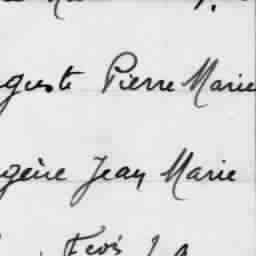 guste Pierre Marie
gène Jean Marie
Fcois